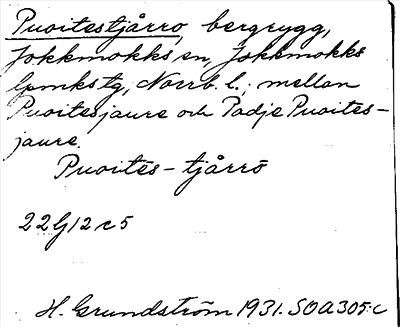 Puoitestjårro, bergrygg,
Jokkmokks sn, Jokkmokks
lpmks tg, Norrb. l.; mellan
Puoitesjaure och Padje Puoites-
jaure.
Puoitēs-tjårrō
22G12c5
H. Grundström 1931. SOA305:c